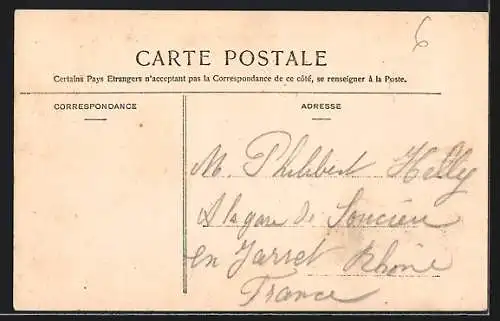 6
CARTE POSTALE
Certains Pays Etrangers n'acceptant pas la Correspondance de ce côté, se renseigner à la Poste.
CORRESPONDANCE
ADRESSE
M. Philibert Helly
A la gare de Soucieu
en Jarret Rhône
France